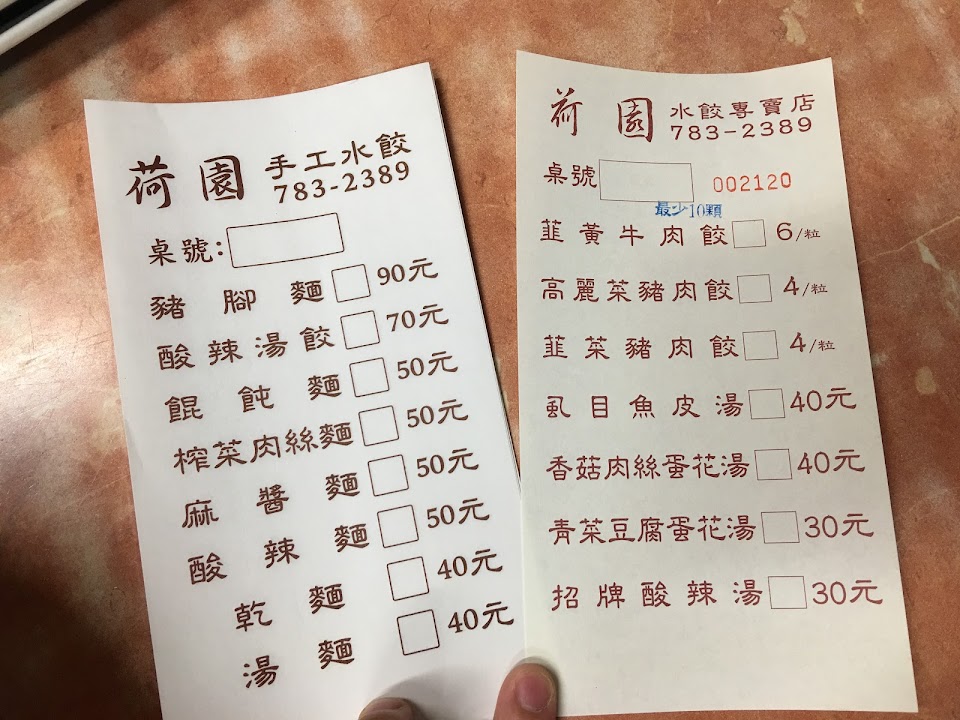 荷園 手工水餃
783-2389
桌號:
豬腳麵 90元
酸辣湯餃 70元
餛飩麵 50元
榨菜肉絲麵 50元
麻醬麵 50元
酸辣麵 50元
乾麵 40元
湯麵 40元
荷園 水餃專賣店
783-2389
桌號 002120
最少10顆
韮黃牛肉餃 6/粒
高麗菜豬肉餃 4/粒
韮菜豬肉餃 4/粒
虱目魚皮湯 40元
香菇肉絲蛋花湯 40元
青菜豆腐蛋花湯 30元
招牌酸辣湯 30元